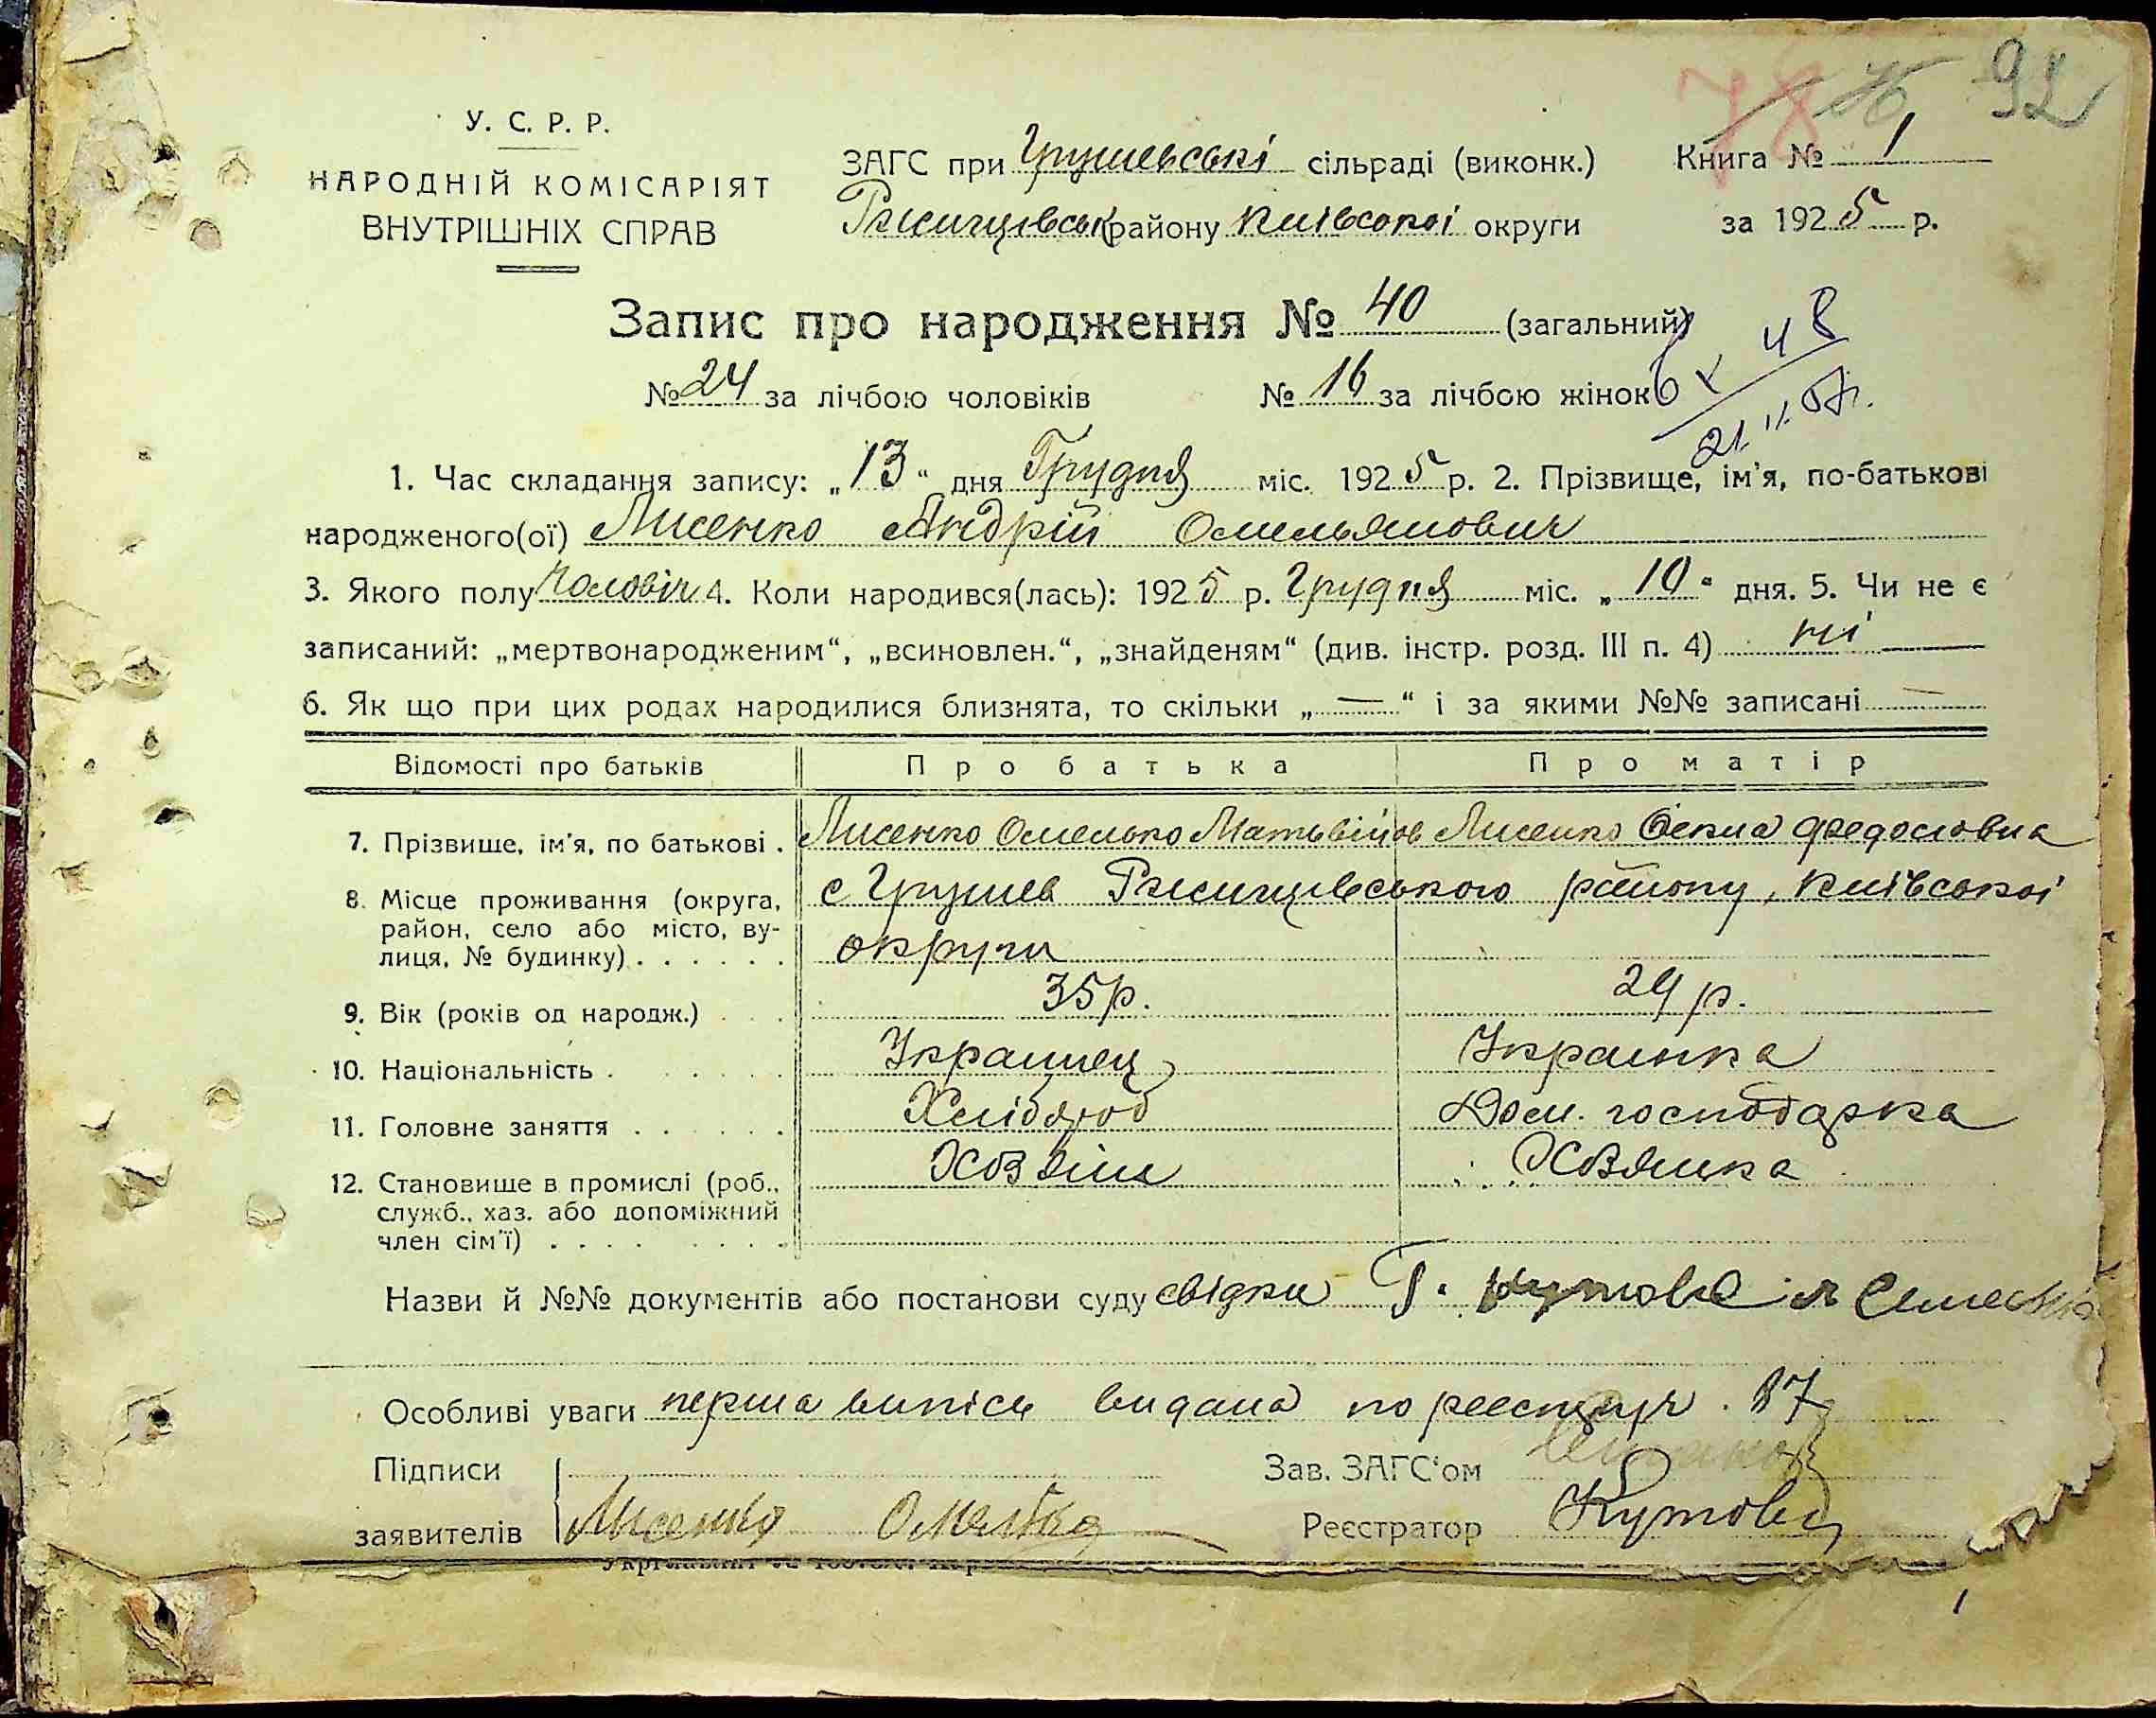 92
У. С. Р. Р.
НАРОДНІЙ КОМІСАРІЯТ
ВНУТРІШНІХ СПРАВ
ЗАГС при Грушевські сільраді (виконк.)
Ржищівськ району Київської округи
Книга № 1
за 1925 р.
Запис про народження № 40 (загальний)
№ 24 за лічбою чоловіків № 16 за лічбою жінок
1. Час складання запису: „13“ дня Грудня міс. 1925 р. 2. Прізвище, ім'я, по-батькові
народженого(ої) Лисенко Андрій Омельянович
3. Якого полу чоловіч 4. Коли народився(лась): 1925 р. Грудня міс. „10“ дня. 5. Чи не є
записаний: „мертвонародженим“, „всиновлен.“, „знайденям“ (див. інстр. розд. III п. 4) ні
6. Як що при цих родах народилися близнята, то скільки „—“ і за якими №№ записані —
Відомості про батьків Про батька Про матір
7. Прізвище, ім'я, по батькові . Лисенко Омелько Матьвійов Лисенко Текла Федосіовна
8. Місце проживання (округа, район, село або місто, ву-
лиця, № будинку) . . . . . . с Грушев Ржищівського району, Київської
округи
9. Вік (років од народж.) . . . 35 р. 29 р.
10. Національність . . . . . . Украинец Украинка
11. Головне заняття . . . . . . Хлібороб Дом. господарка
12. Становище в промислі (роб., Хозяїн Хозяика
служб., хаз. або допоміжний
член сім'ї) . . . . . . . .
Назви й №№ документів або постанови суду свідки Г. Кутова
Особливі уваги перша випісь видана по реестру ч. 37
Підписи Зав. ЗАГС'ом
заявителів Лисенко Омелько Реєстратор Кутова